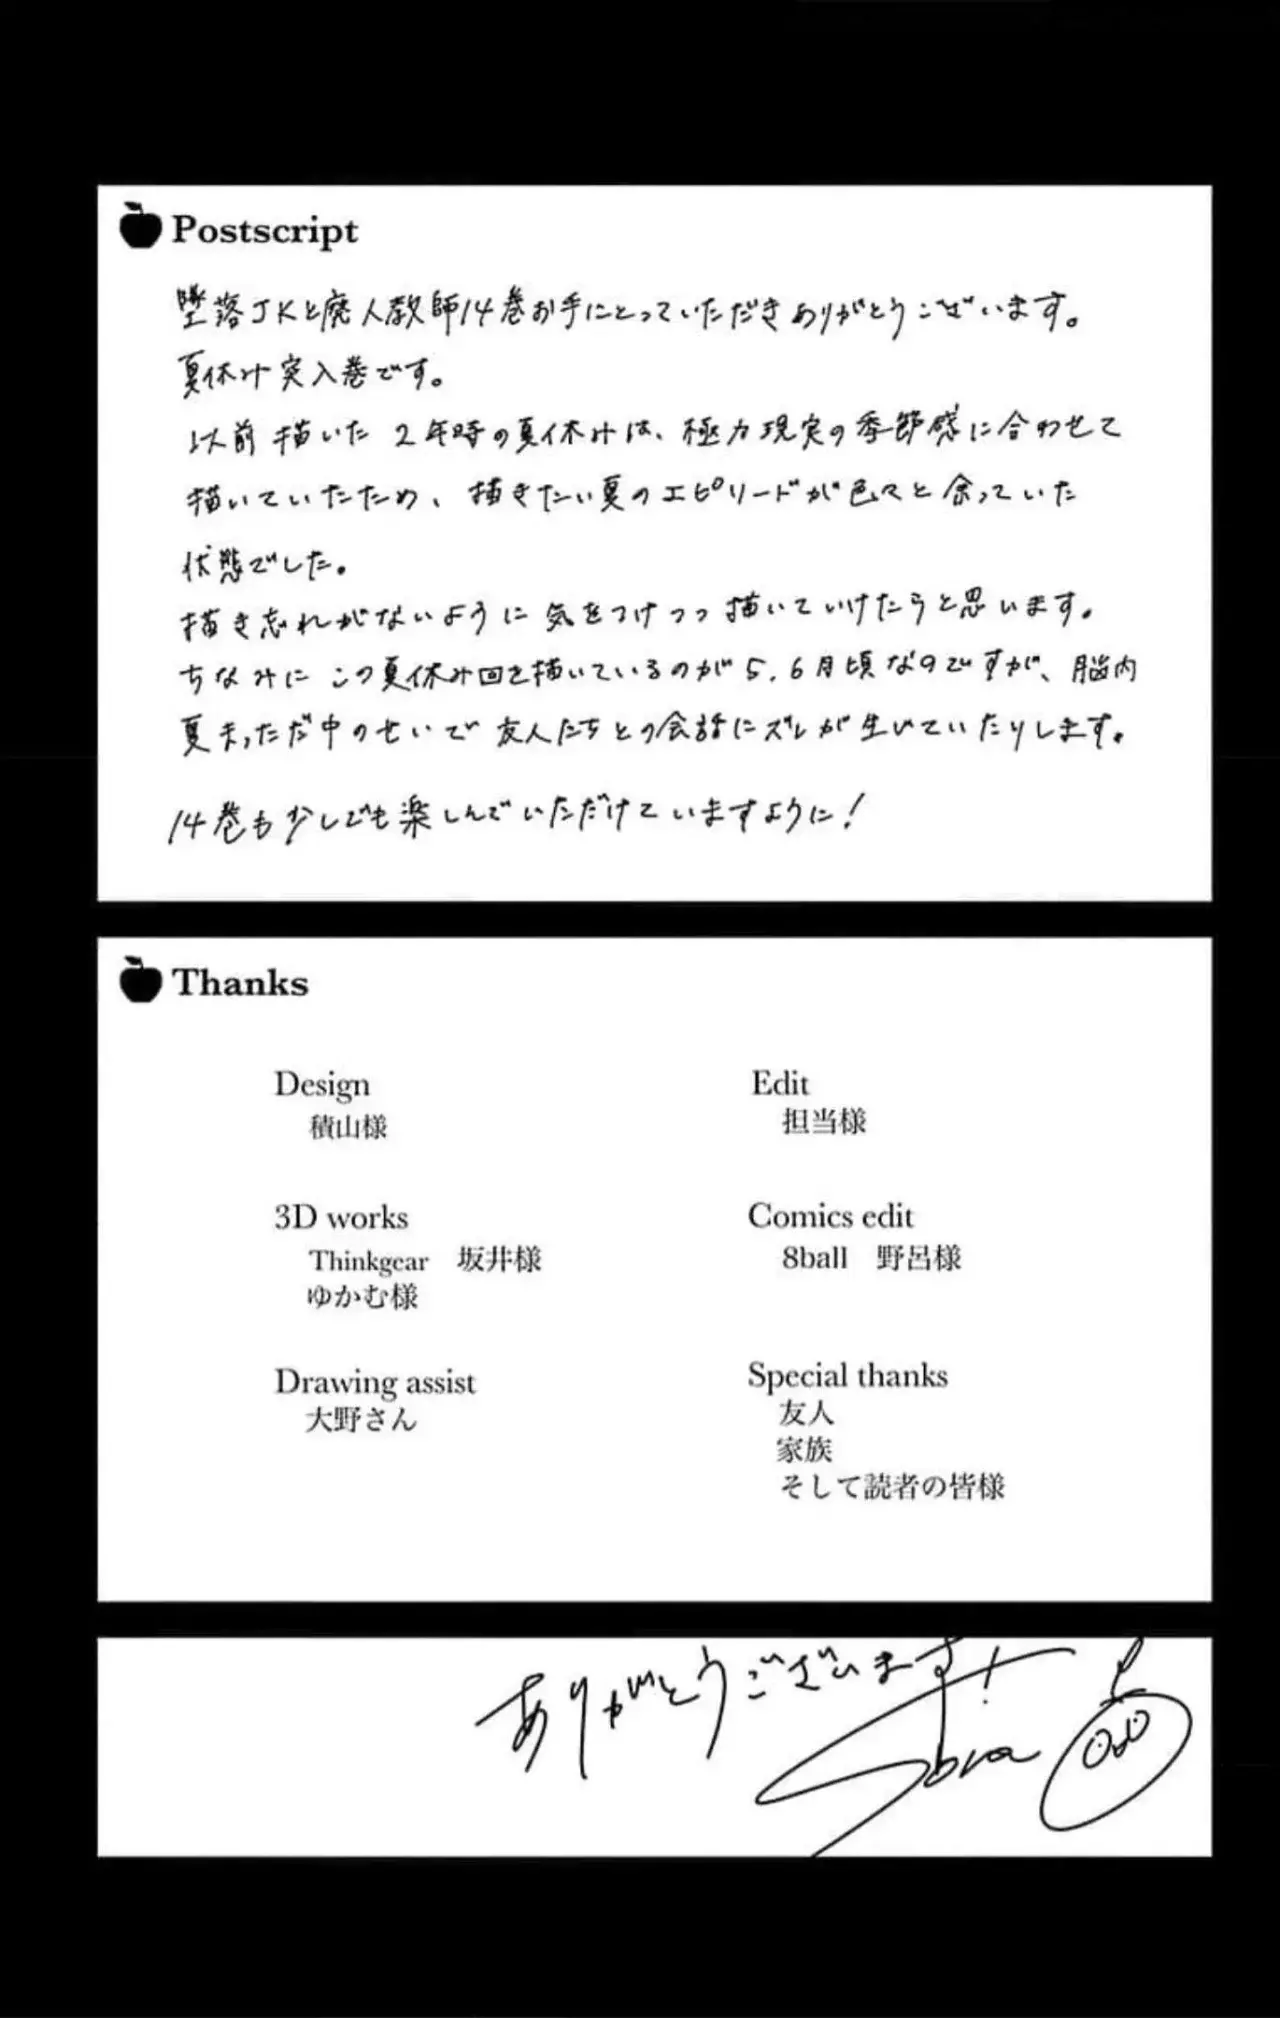 Postscript
墜落JKと廃人教師14巻お手にとっていただきありがとうございます。
夏休み突入巻です。
以前描いた2年時の夏休みは、極力現実の季節感に合わせて
描いていたため、描きたい夏のエピソードが色々と余っていた
状態でした。
描き忘れがないように気をつけつつ描いていけたらと思います。
ちなみにこの夏休み回を描いているのが5,6月頃なのですが、脳内
夏まっただ中のせいで友人たちとの会話にズレが生じていたりします。
14巻も少しでも楽しんでいただけていますように!
Thanks
Design
積山様
Edit
担当様
3D works
Thinkgear 坂井様
ゆかむ様
Comics edit
8ball 野呂様
Drawing assist
大野さん
Special thanks
友人
家族
そして読者の皆様
ありがとうございます!
Sora